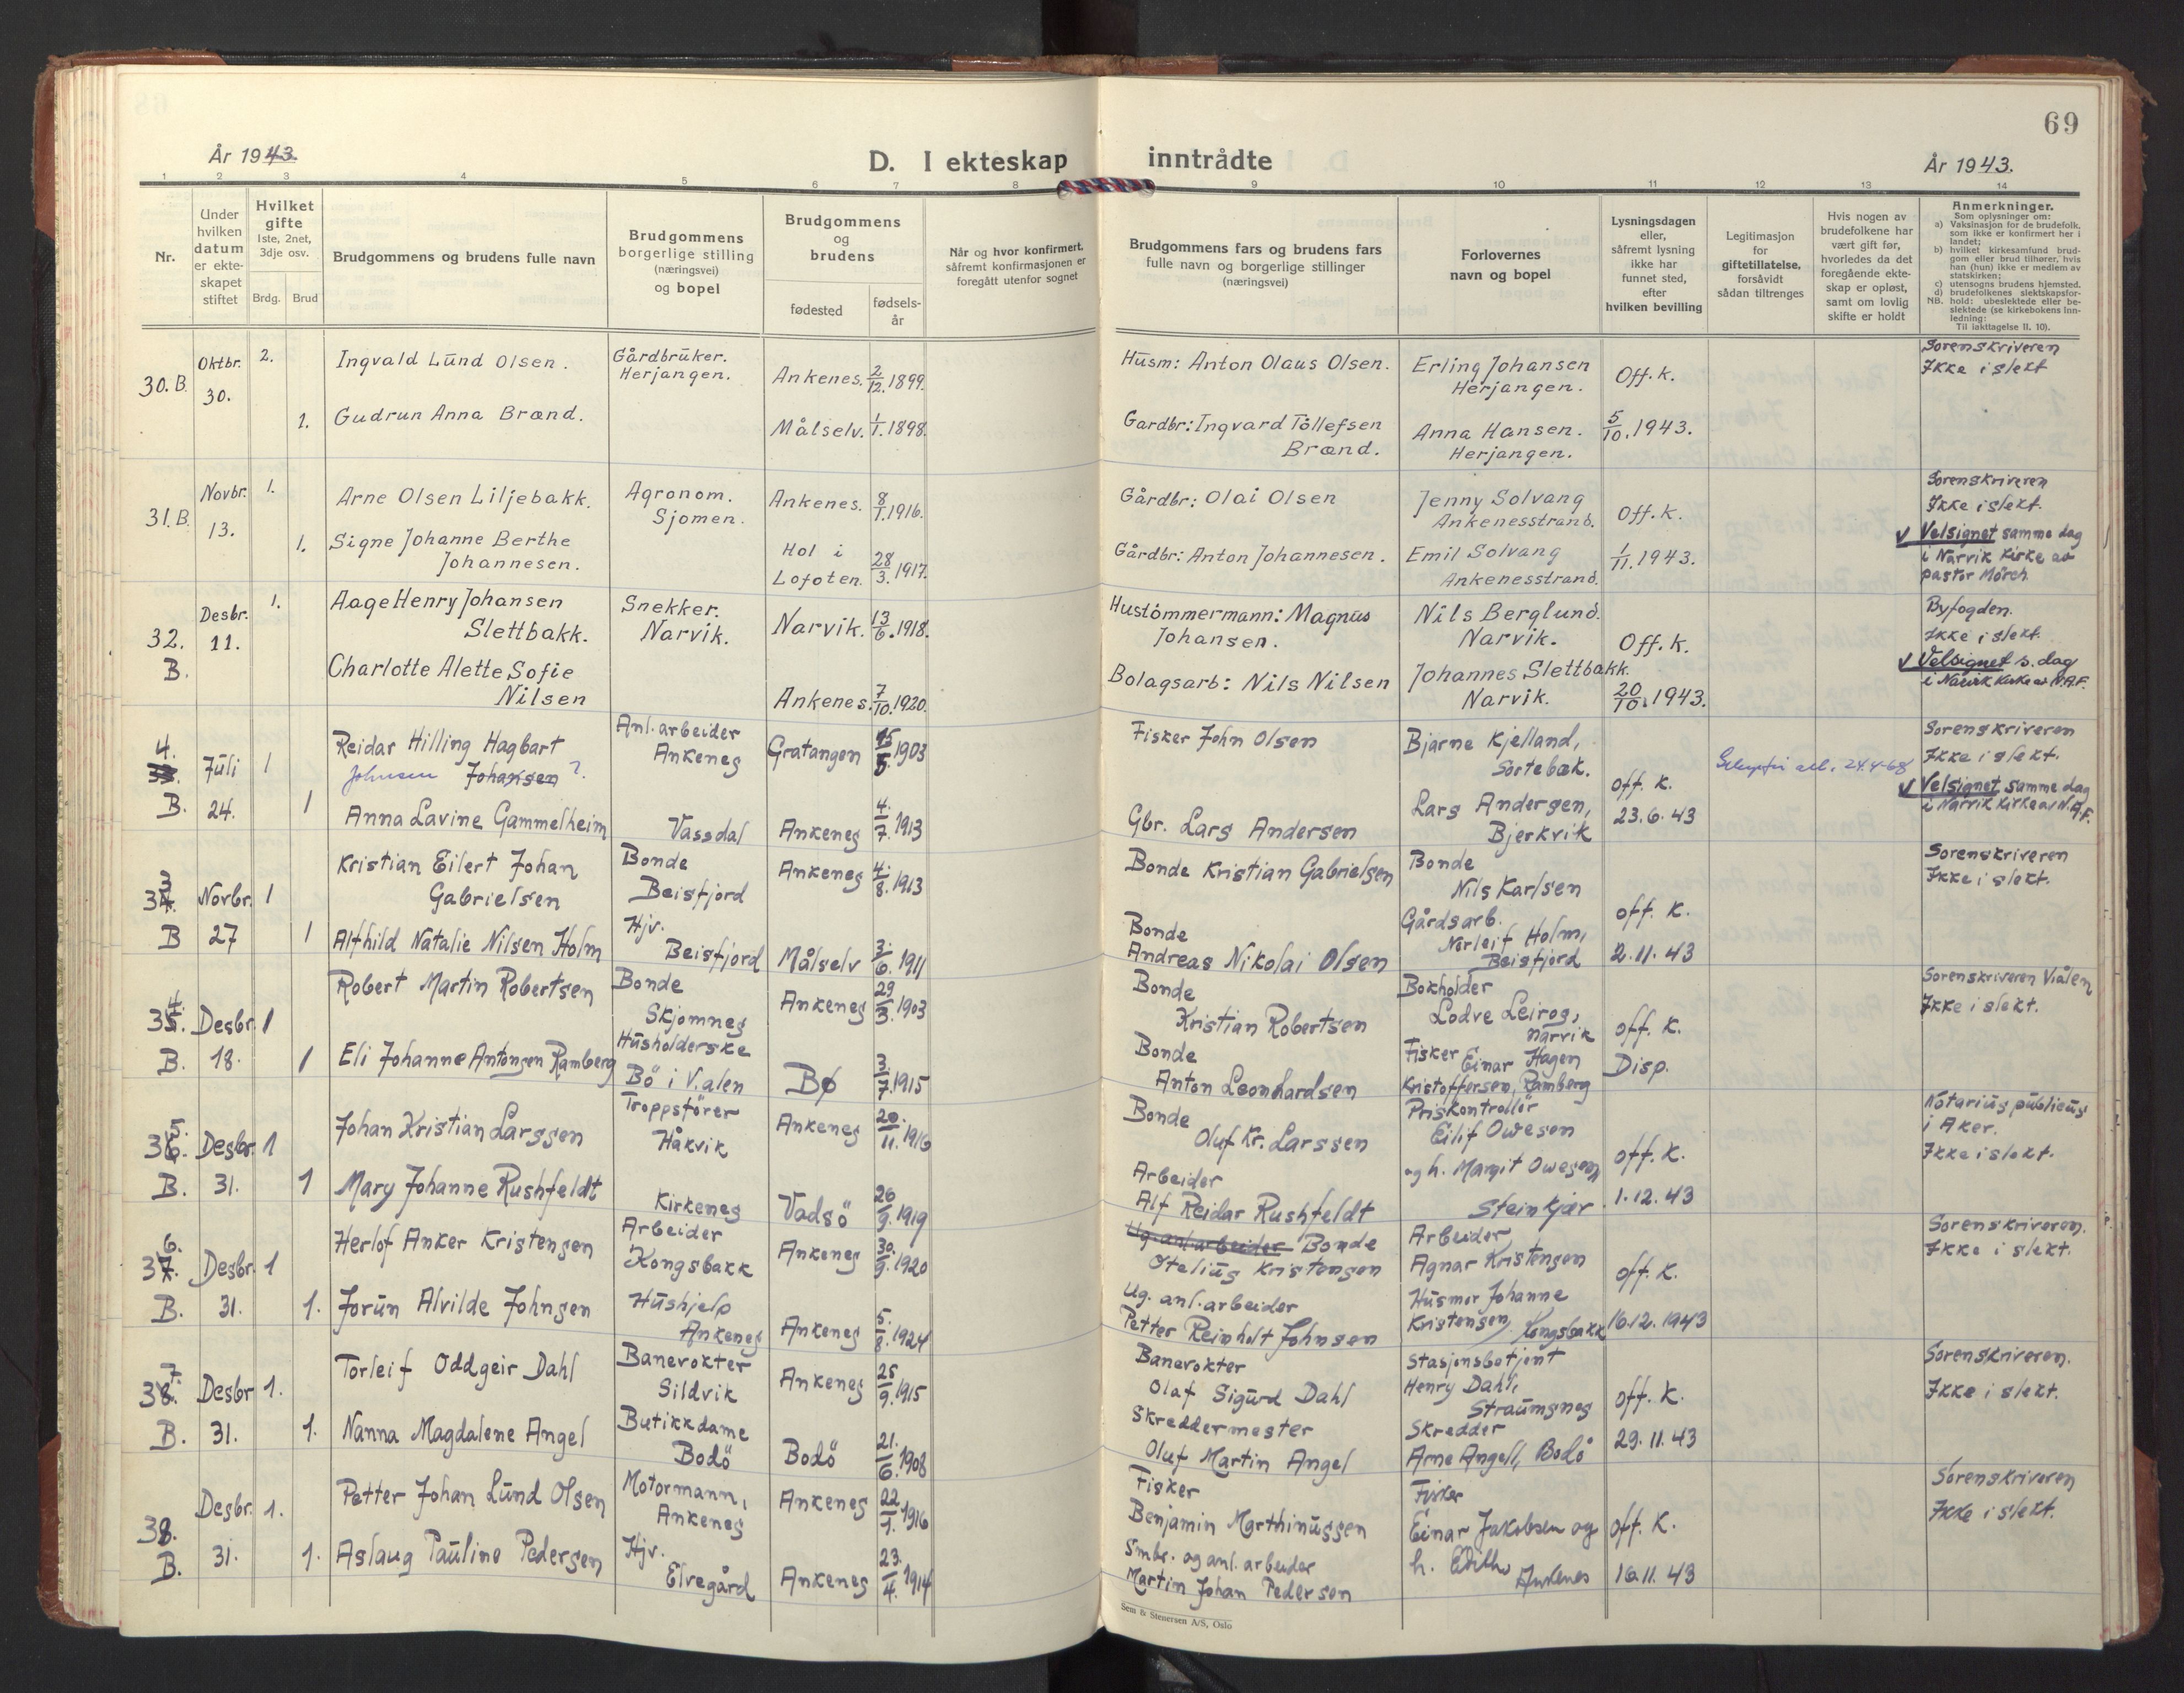 69
År 1943.
D. I ekteskap inntrådte
År 1943.
1 2 3 4 5 6 7 8 9 10 11 12 13 14
Nr.
Under hvilken datum er ekte- skapet stiftet
Hvilket gifte
1ste, 2net, 3dje osv.
Brdg. Brud
Brudgommens og brudens fulle navn
Brudgommens borgerlige stilling (næringsvei) og bopel
Brudgommens og brudens
fødested
fødsels- år
Når og hvor konfirmert, såfremt konfirmasjonen er foregått utenfor sognet
Brudgommens fars og brudens fars fulle navn og borgerlige stillinger (næringsvei)
Forlovernes navn og bopel
Lysningsdagen eller, såfremt lysning ikke har funnet sted, efter hvilken bevilling
Legitimasjon for giftetillatelse, forsåvidt sådan tiltrenges
Hvis nogen av brudefolkene har vært gift før, hvorledes da det foregående ekte- skap er opløst, samt om lovlig skifte er holdt
Anmerkninger.
Som oplysninger om:
a) Vaksinasjon for de brudefolk, som ikke er konfirmert her i landet;
b) hvilket kirkesamfund brud- gom eller brud tilhører, hvis han (hun) ikke er medlem av statskirken;
c) utensogns brudens hjemsted.
d) brudefolkenes slektskapsfor-
NB. hold: ubeslektede eller be- slektede (se kirkebokens Inn- ledning:
Til iakttagelse II. 10).
30. B. Oktbr. 30. 2. Ingvald Lund Olsen. Gårdbruker. Herjangen. Ankenes. 2/12. 1899. Husm: Anton Olaus Olsen. Erling Johansen Herjangen. Off. k. Sorenskriveren Ikke i slekt
1. Gudrun Anna Brænd. Målselv. 1/1. 1898. Gardbr: Ingvard Tollefsen Brænd. Anna Hansen. Herjangen. 5/10. 1943.
31. B. Novbr. 13. 1. Arne Olsen Liljebakk. Agronom. Sjomen. Ankenes. 8/1. 1916. Gårdbr: Olai Olsen Jenny Solvang Ankenesstrand. Off. k. Sorenskriveren Ikke i slekt.
1. Signe Johanne Berthe Johannesen. Hol i Lofoten. 28/3. 1917. Gårdbr: Anton Johannesen. Emil Solvang Ankenesstrand. 1/11. 1943. Velsignet samme dag i Narvik Kirke av pastor Mörch
32. B. Desbr. 11. 1. Aage Henry Johansen Slettbakk. Snekker. Narvik. Narvik. 13/6. 1918. Hustömmermann: Magnus Johansen. Nils Berglund. Narvik. Off. k. Byfogden. Ikke i slekt.
Charlotte Alette Sofie Nilsen Ankenes. 7/10. 1920. Bolagsarb: Nils Nilsen Johannes Slettbakk. Narvik. 20/10. 1943. Velsignet s. dag i Narvik Kirke av N.A.F.
4. 33. B. Juli 24. 1 Reidar Hilling Hagbart Johnsen Johansen ? Anl. arbeider Ankenes Gratangen 15/5. 1903 Fisker John Olsen Bjarne Kjelland, Sørtebæk. off. k. 24.4-68 Sorenskriveren Ikke i slekt.
1 Anna Lavine Gammelheim Vassdal Ankenes 4/7. 1913 Gbr. Lars Andersen Lars Andersen, Bjerkvik 23.6.43 Velsignet samme dag i Narvik Kirke av N.A.F.
33. B Novbr. 27 1 Kristian Eilert Johan Gabrielsen Bonde Beisfjord Ankenes 4/8. 1913 Bonde Kristian Gabrielsen Bonde Nils Karlsen off. k. Sorenskriveren Ikke i slekt.
1 Alfhild Natalie Nilsen Holm Hjv. Beisfjord Målselv 3/6. 1911 Bonde Andreas Nikolai Olsen Gårdsarb. Norleif Holm, Beisfjord 2.11.43
34. B. Desbr. 18. 1 Robert Martin Robertsen Bonde Skjomnes Ankenes 29/3. 1903 Bonde Kristian Robertsen Bokholder Lodve Leiros, Narvik off. k. Sorenskriveren Vtålen Ikke i slekt.
1 Eli Johanne Antonsen Ramberg Husholderske Bö i V.ålen Bø 3/7. 1915 Bonde Anton Leonhardsen Fisker Einar Hagen Kristoffersen, Ramberg Disp.
35. B. Desbr. 31. 1 Johan Kristian Larssen Troppsförer Håkvik Ankenes 20/11. 1916 Bonde Oluf Kr. Larssen Priskontrollör Eilif Owesen off. k. Notarius publicus i Aker. Ikke i slekt.
1 Mary Johanne Rushfeldt Kirkenes Vadsö 26/9. 1919 Arbeider Alf Reidar Rushfeldt og h. Margit Owesen Steinkjær 1.12.43
36. B. Desbr. 31. 1 Herlof Anker Kristensen Arbeider Kongsbakk Ankenes 30/9. 1920 Ug. anl. arbeider Bonde Otelius Kristensen Arbeider Agnar Kristensen off. k. Sorenskriveren. Ikke i slekt.
1. Jorun Alvilde Johnsen Hushjelp Ankenes Ankenes 5/8. 1924 Ug. anl. arbeider Petter Reinholt Johnsen Husmor Johanne Kristensen, Kongsbakk 16.12.1943
37. B. Desbr 31. 1. Torleif Oddgeir Dahl Banevokter Sildvik Ankenes 25/9. 1915 Banevokter Olaf Sigurd Dahl Stasjonsbetjent Henry Dahl, Straumsnes off. k. Sorenskriveren. Ikke i slekt.
1. Nanna Magdalene Angel Butikkdame Bodö Bodö 21/6. 1908 Skreddermester Oluf Martin Angel Skredder Arne Angell, Bodö 29.11.43
38. B. Desbr. 31. 1. Petter Johan Lund Olsen Motormann, Ankenes Ankenes 22/1. 1916 Fisker Benjamin Marthinussen Fisker Einar Jakobsen og off. k. Sorenskriveren Ikke i slekt.
1. Aslaug Pauline Pedersen Hjv. Elvegård Ankenes 23/4. 1914 Smbr. og anl. arbeider Martin Johan Pedersen h. Edith Ankenes 16.11.43
Sem & Stenersen A/S, Oslo